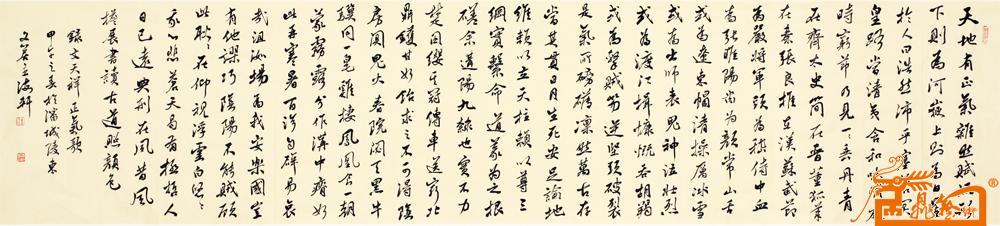 天地有正氣雜然賦流形
下則為河嶽上則為日星
於人曰浩然沛乎塞蒼冥
皇路當清夷含和吐
時窮節乃見一一垂丹青
在齊太史簡在晉董狐筆
在秦張良椎在漢蘇武節
為嚴將軍頭為嵇侍中血
為張睢陽齒為顏常山舌
或為遼東帽清操厲冰雪
或為出師表鬼神泣壯烈
或為渡江楫慷慨吞胡羯
或為擊賊笏逆豎頭破裂
是氣所磅礴凜然萬古存
當其貫日月生死安足論地
維賴以立天柱賴以尊三
綱實繫命道義為之根
嗟余遘陽九隸也實不力
楚囚纓其冠傳車送窮北
鼎鑊甘如飴求之不可得陰
房闃鬼火春院閟天黑牛
驥同一皂雞棲鳳凰食一朝
蒙霧露分作溝中瘠如
此再寒暑百沴自辟易哀
哉沮洳場為我安樂國豈
有他謬巧陰陽不能賊顧
此耿耿在仰視浮雲白悠
悠我心悲蒼天曷有極哲人
日已遠典刑在夙昔風
檐展書讀古道照顏色
錄文天祥正氣歌